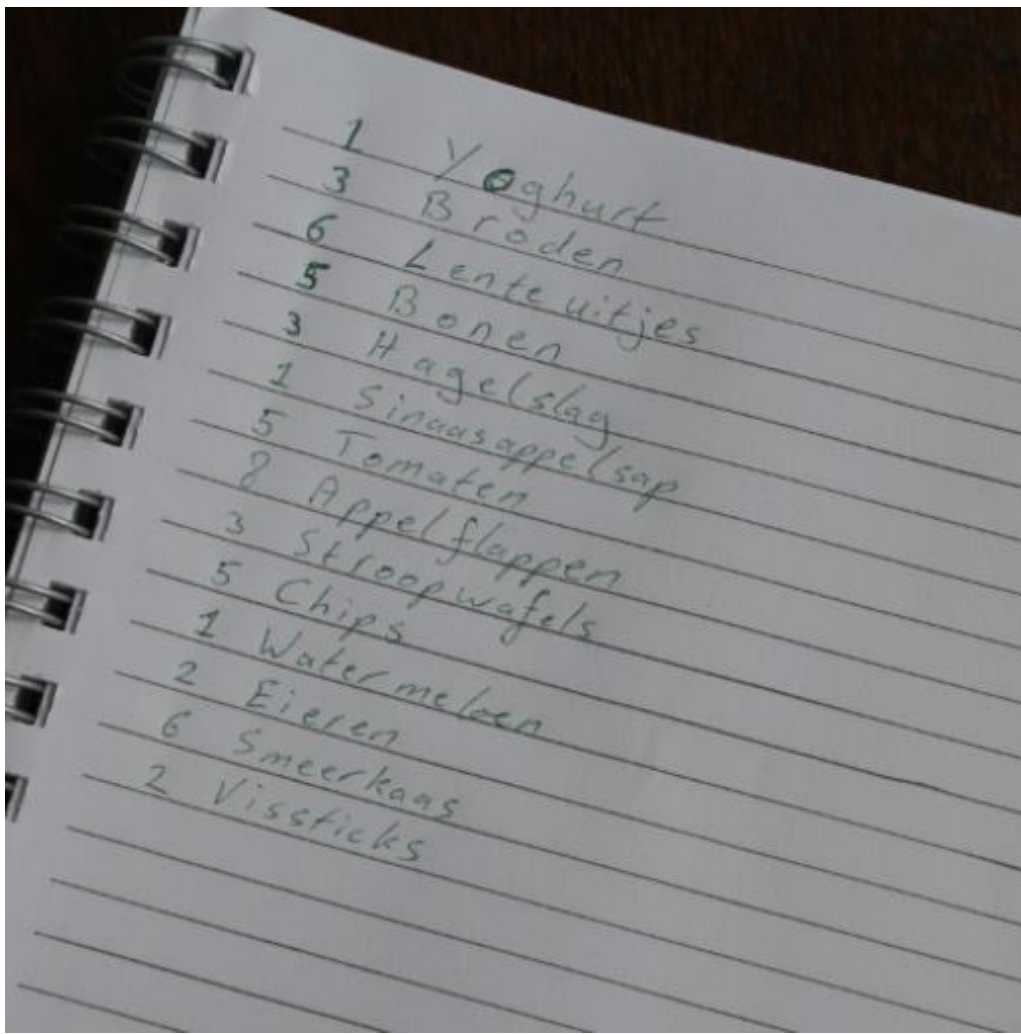 1 Yoghurt
3 Broden
6 Lente uitjes
5 Bonen
3 Hagelslag
1 Sinaasappelsap
5 Tomaten
8 Appelflappen
3 Stroopwafels
5 Chips
1 Watermeloen
2 Eieren
6 Smeerkaas
2 Vissticks